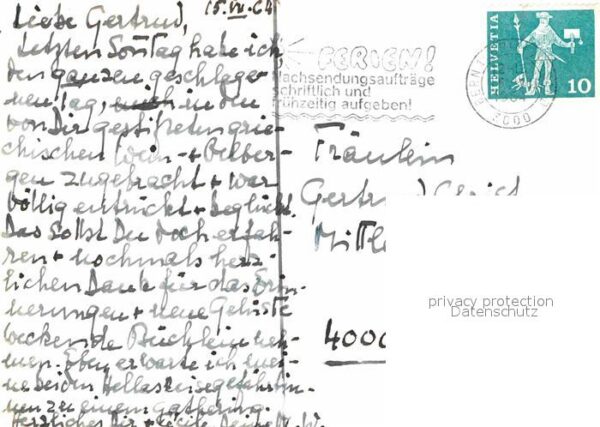 15. VII. 64
Liebe Gertrud,
Letzten Sonntag habe ich
den ganzen geschlage-
nen Tag, in den
von Dir gestifteten grie-
chischen Wein- + Ölber-
gen zugebracht + war
völlig entrückt + beglückt.
Das sollst Du doch erfah-
ren + nochmals herz-
lichen Dank für das Erin-
nerungen + neue Gelüste
weckende Büchlein neh-
men. Eben erwarte ich mei-
ne beiden Hellasreisegefährtin-
nen zu einem gathering.
Herzliches Dir + Cécile Deine
FERIEN!
Nachsendungsaufträge
schriftlich und
frühzeitig aufgeben!
BERN 1
3000
HELVETIA
10
Fräulein
Gertrud
Mittle
4000
privacy protection
Datenschutz